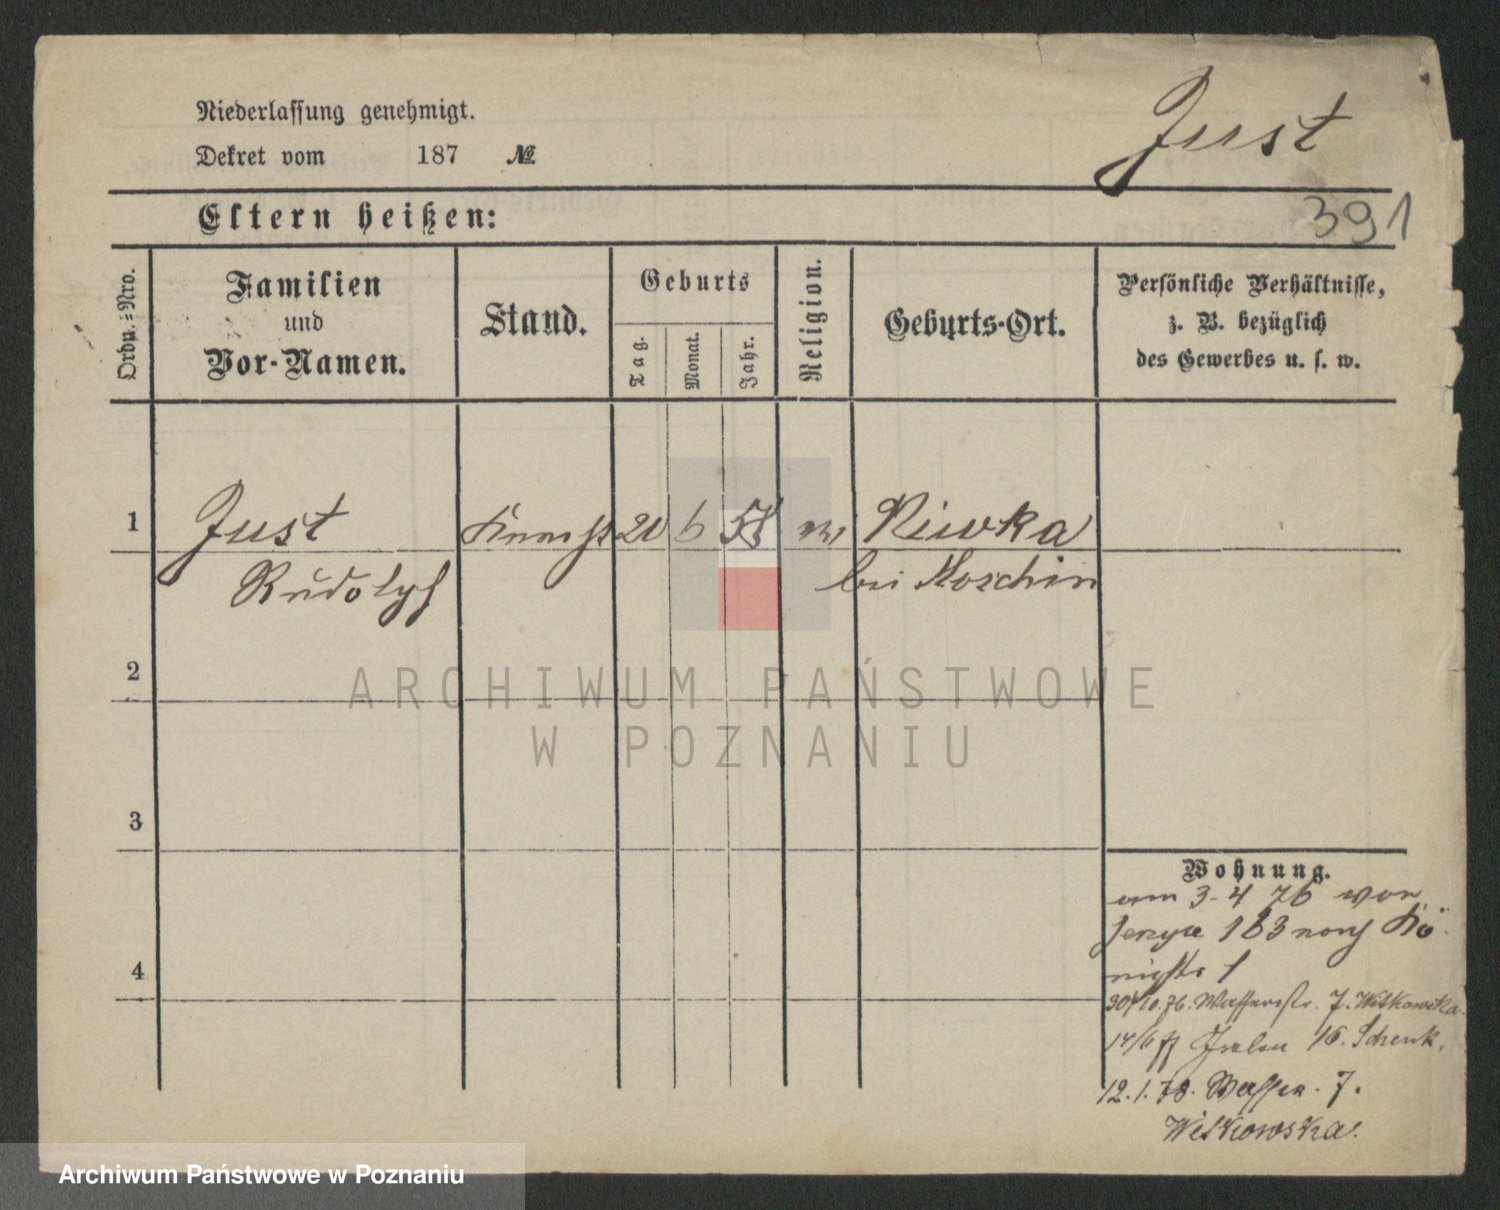 Just
Niederlassung genehmigt.
Dekret vom 187 №
391
Eltern heißen:
Ordn.=Nro.
Familien
und
Vor-Namen.
Stand.
Geburts
Tag.
Monat.
Jahr.
Religion.
Geburts-Ort.
Persönliche Verhältnisse,
z. B. bezüglich
des Gewerbes u. s. w.
1 Just Knecht 20 6 58 Niwka
Rudolph bei Moschin
2
3
4
Wohnung.
am 3. 4 76 von
Jerzyce 163 nach Kö-
nigstr 1
30/10.76. Wasserstr. 7. Witkowska.
14/6 77 16. Schenk.
12.1.78. Wasser. 7.
Witkowska.
ARCHIWUM PAŃSTWOWE
W POZNANIU
Archiwum Państwowe w Poznaniu